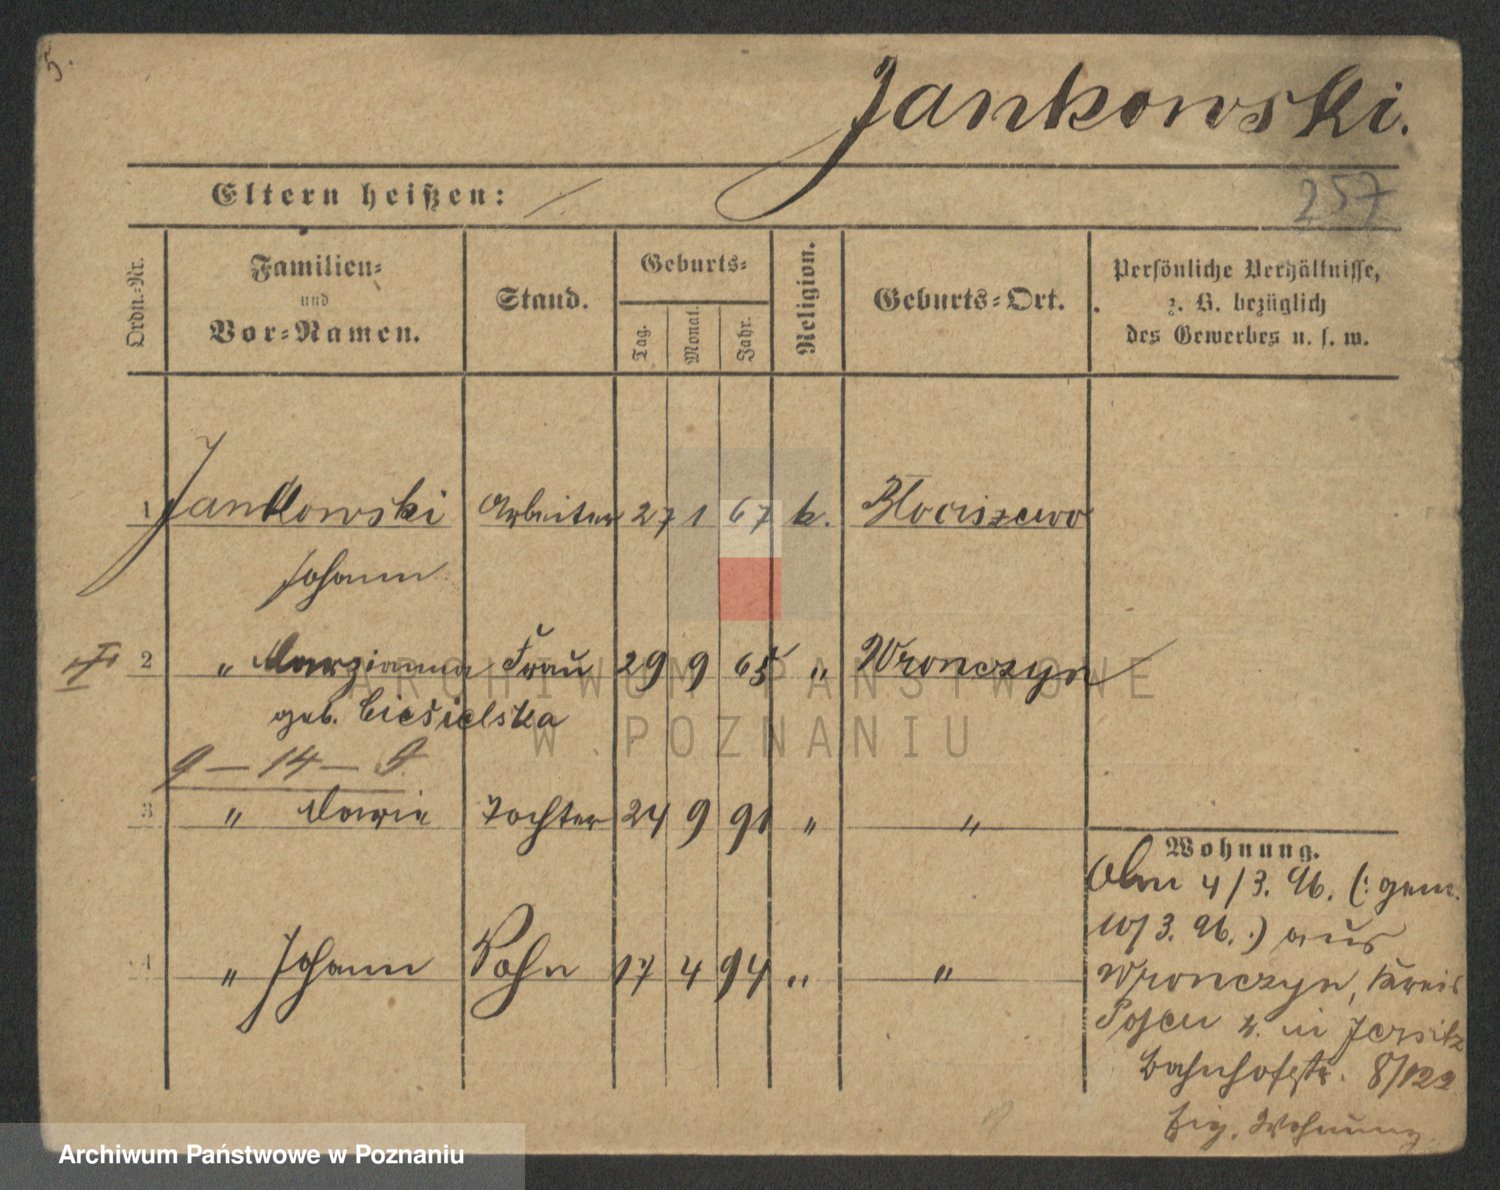 5.
Jankowski.
Eltern heißen:
257
Ordn.-Nr.
Familien-
und
Vor-Namen.
Stand.
Geburts-
Tag.
Monat.
Jahr.
Religion.
Geburts-Ort.
Persönliche Verhältnisse,
z. B. bezüglich
des Gewerbes u. s. w.
1 Jankowski Arbeiter 27 1 67 k. Błociszewo
Johann
2 " Marzianna Frau 29 9 65 " Wronczyn
geb. Ciesielska
9 — 14 — 9.
3 " Marie Tochter 24 9 91 " "
4 " Johann Sohn 17 4 94 " "
Wohnung.
Am 4/3. 96. (: gem.
10/3. 96. :) aus
Wronczyn, Kreis
Posen z. in Jersitz
Bahnhofstr. 8/122
Eig. Wohnung.
ARCHIWUM PAŃSTWOWE
W POZNANIU
Archiwum Państwowe w Poznaniu